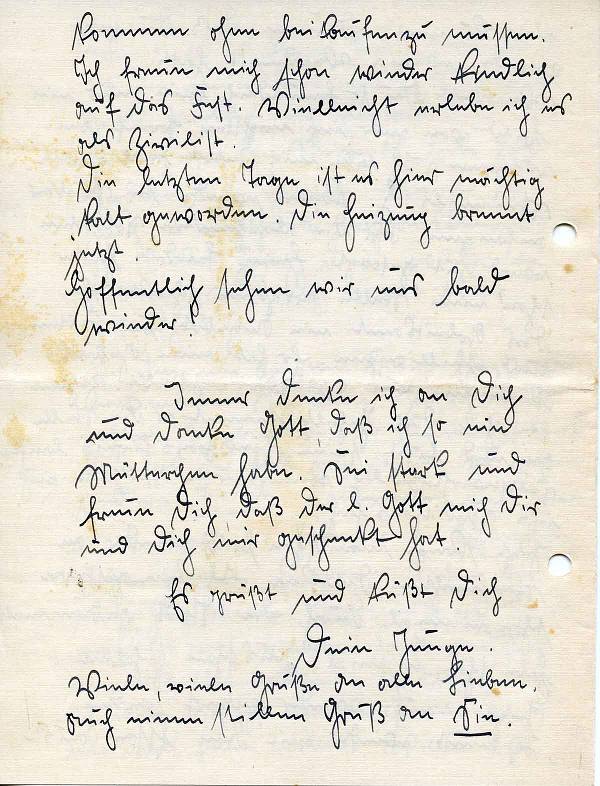 kommen ohne beikaufen zu müssen.
Ich freue mich schon wieder kindlich
auf das Fest. Vielleicht erlebe ich es
als Zivilist.
Die letzten Tage ist es hier mächtig
kalt geworden. Die Heizung brennt
jetzt.
Hoffentlich sehen wir uns bald
wieder!
Immer denke ich an Dich
und danke Gott, daß ich so ein
Mutterchen habe. Sei stark und
freue Dich, daß der l. Gott mich Dir
und Dich mir geschenkt hat.
Es grüßt und küßt Dich
Dein Junge.
Viele, viele Grüße an alle Lieben.
Auch einen stillen Gruß an Sie.